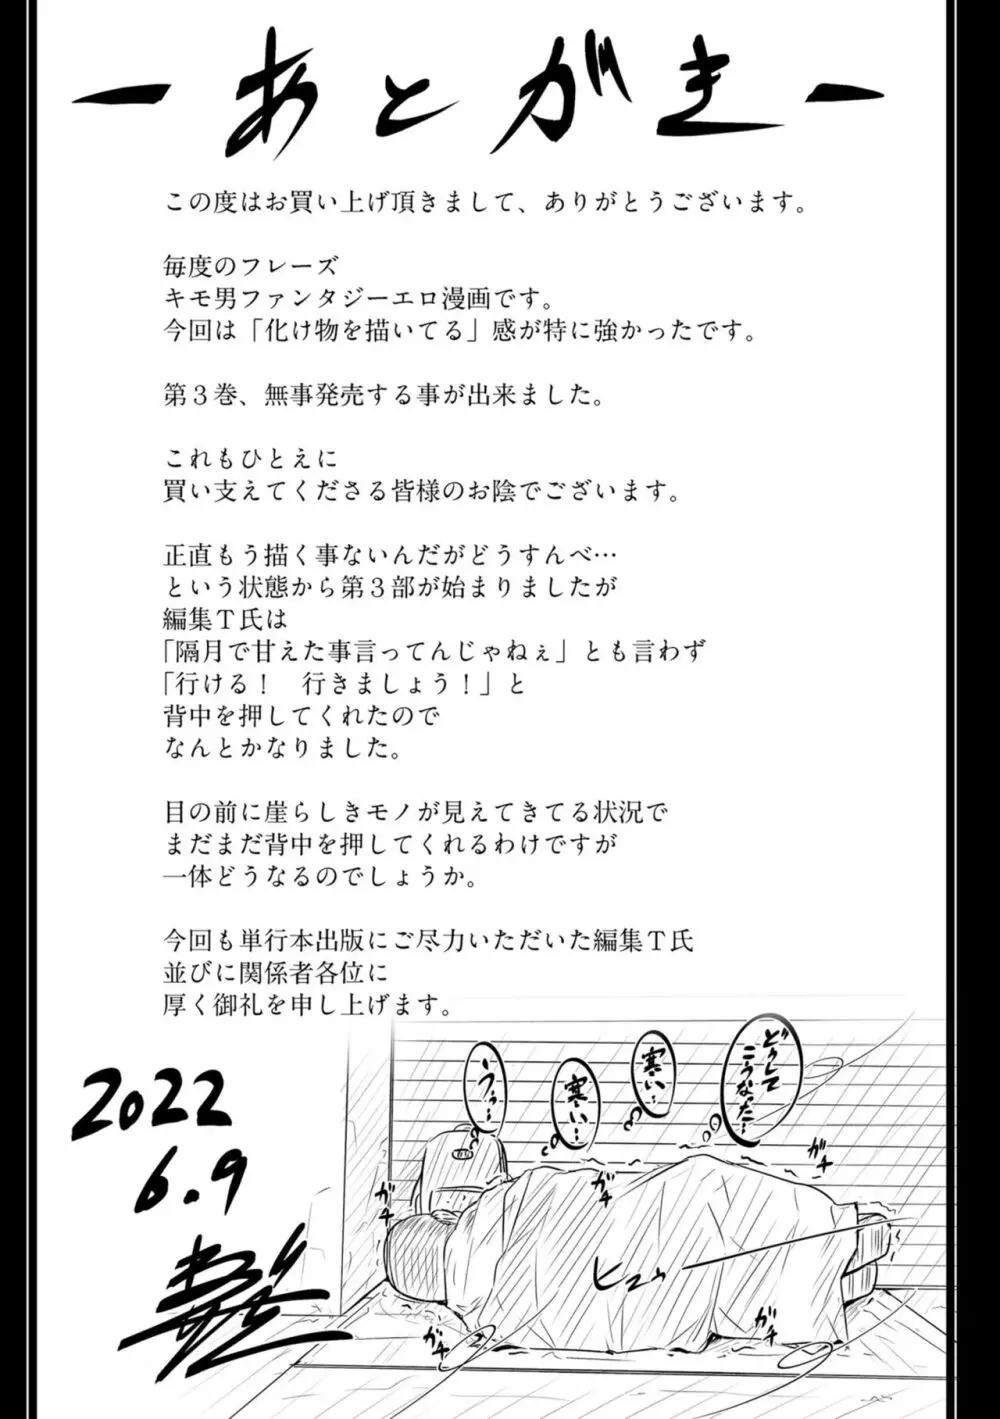 －あとがき－
この度はお買い上げ頂きまして、ありがとうございます。
毎度のフレーズ
キモ男ファンタジーエロ漫画です。
今回は「化け物を描いてる」感が特に強かったです。
第３巻、無事発売する事が出来ました。
これもひとえに
買い支えてくださる皆様のお陰でございます。
正直もう描く事ないんだがどうすんべ…
という状態から第３部が始まりましたが
編集Ｔ氏は
「隔月で甘えた事言ってんじゃねぇ」とも言わず
「行ける！　行きましょう！」と
背中を押してくれたので
なんとかなりました。
目の前に崖らしきモノが見えてきてる状況で
まだまだ背中を押してくれるわけですが
一体どうなるのでしょうか。
今回も単行本出版にご尽力いただいた編集Ｔ氏
並びに関係者各位に
厚く御礼を申し上げます。
どうして
こうなった…
寒い…
寒い…
うう…
ガチ
ガチ
ガチ
ガチ
ガチ
ヒュゥ
2022
6.9